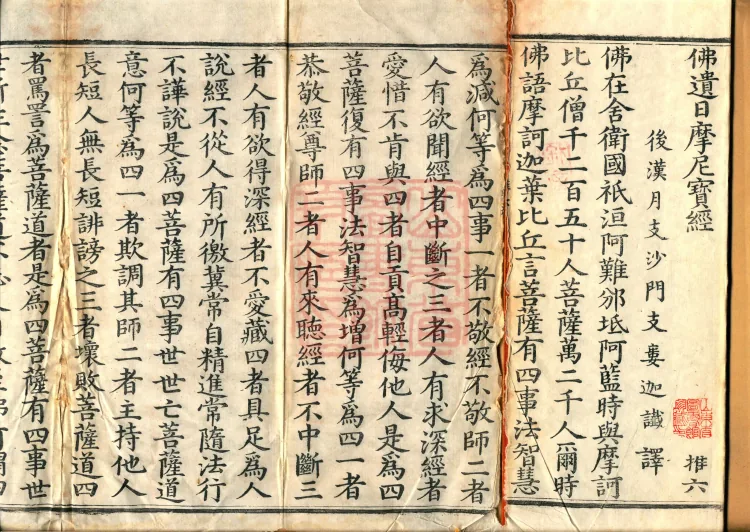 佛遺日摩尼寶經 推六
後漢月支沙門支婁迦讖譯
佛在舍衛國祇洹阿難邠坻阿藍時與摩訶
比丘僧千二百五十人菩薩萬二千人爾時
佛語摩訶迦葉比丘言菩薩有四事法智慧
爲減何等爲四事一者不敬經不敬師二者
人有欲聞經者中斷之三者人有求深經者
愛惜不肯與四者自貢高輕侮他人是爲四
菩薩復有四事法智慧爲增何等爲四一者
恭敬經尊師二者人有來聽經者不中斷三
者人有欲得深經者不愛藏四者具足爲人
說經不從人有所徼冀常自精進常隨法行
不譁說是爲四菩薩有四事世世亡菩薩道
意何等爲四一者欺調其師二者主持他人
長短人無長短誹謗之三者壞敗菩薩道四
者罵詈爲菩薩道者是爲四菩薩有四事世